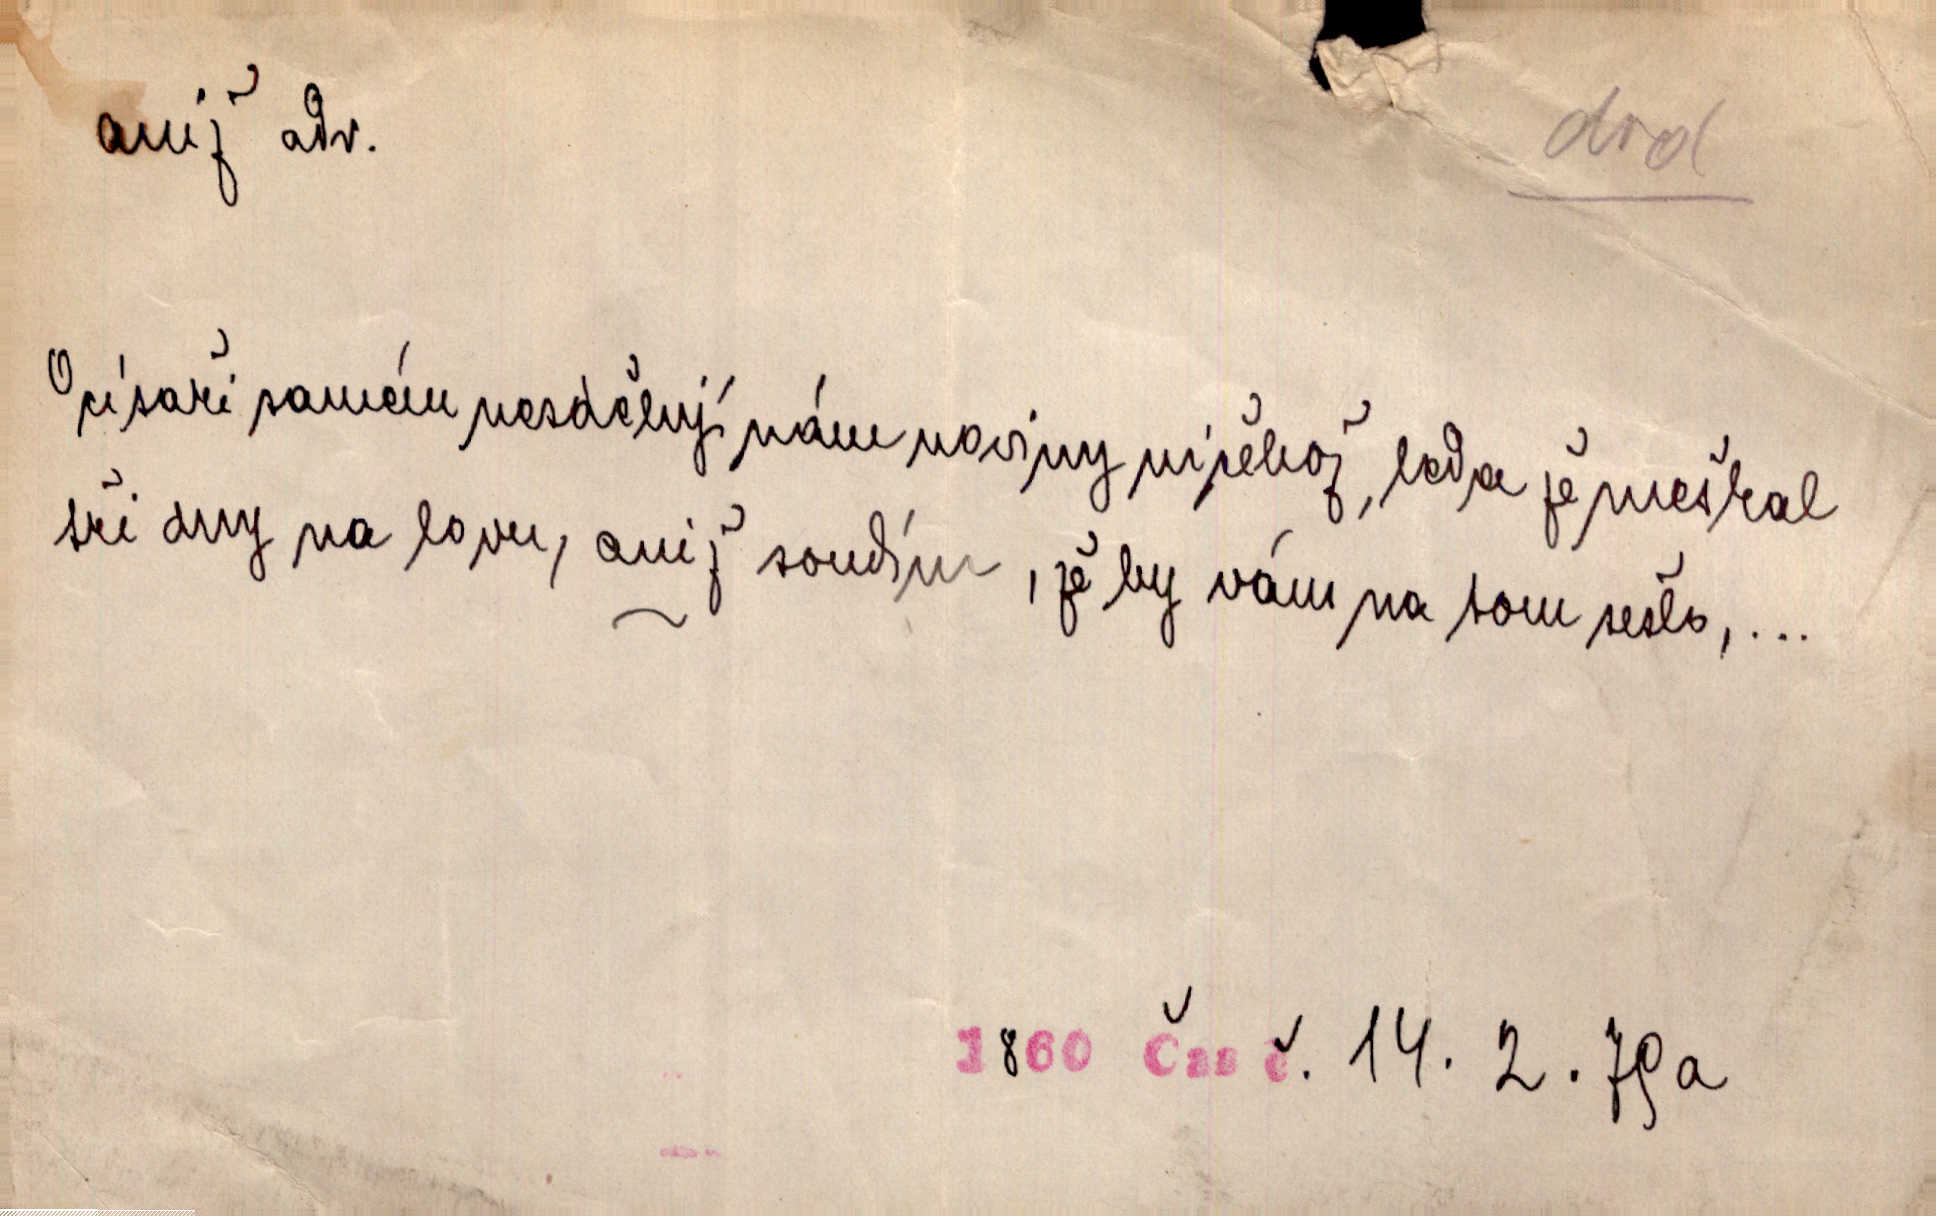 aniž adv.
drd
O císaři samém nesdělují nám noviny ničehož, leda že meškal
tři dny na lovu, aniž soudím, že by vám na tom sešlo, ...
1860 Čas č. 14. 2. 79a